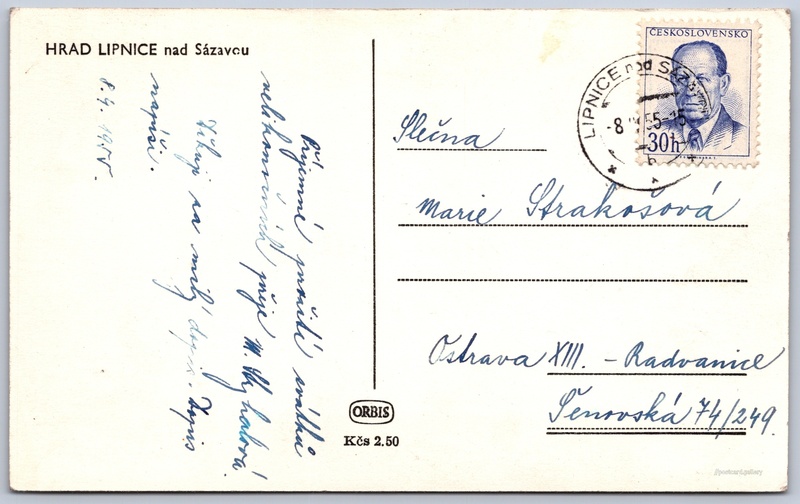 HRAD LIPNICE nad Sázavou
8. 4. 1955.
Příjemné prožití svátků
velikonočních přeje M.
Děkuji za milý dopis. Dopis
napíši.
ČESKOSLOVENSKO
30h
LIPNICE nad SÁZAVOU
-8 55-15
b
Slečna
Marie Strakošová
Ostrava XIII. - Radvanice
Šenovská 74/249.
ORBIS
Kčs 2.50